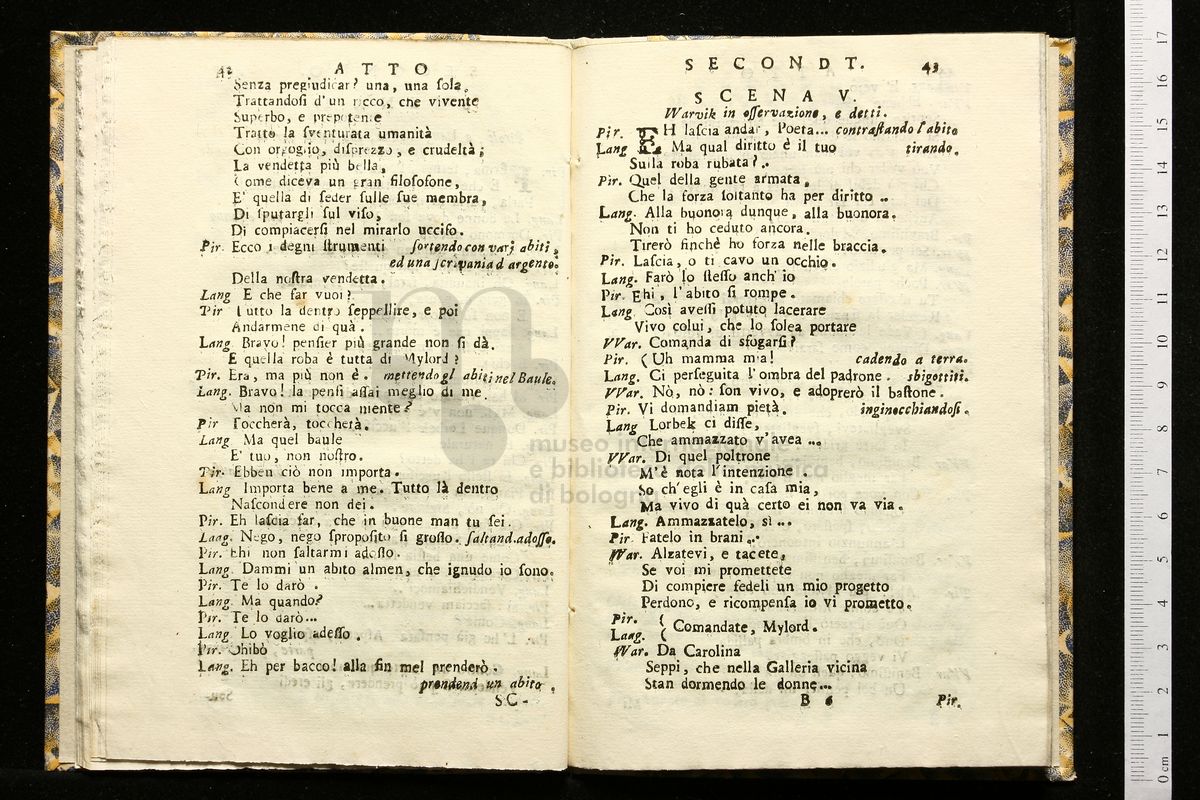 42 ATTO
Senza pregiudicar? una, una ſola.
Trattandoſi d'un ricco, che vivente
Superbo, e prepotente
Tratto la ſventurata umanità
Con orgoglio, diſprezzo, e crudeltà;
La vendetta più bella,
Come diceva un gran filoſofone,
E' quella di ſeder ſulle ſue membra,
Di ſputargli ſul viſo,
Di compiacerſi nel mirarlo ucciſo.
Pir. Ecco i degni ſtrumenti ſortendo con varj abiti,
ed una ſcrivania d argento.
Della noſtra vendetta.
Lang E che far vuoi?
Pir Tutto la dentro ſeppellire, e poi
Andarmene di quà.
Lang. Bravo! penſier più grande non ſi dà.
E quella roba è tutta di Mylord?
Pir. Era, ma più non è. mettendo gl abiti nel Baule.
Lang. Bravo! la penſi aſſai meglio di me.
Ma non mi tocca niente?
Pir Toccherà, toccherà.
Lang Ma quel baule
E' tuo, non noſtro.
Pir. Ebben ciò non importa.
Lang Importa bene a me. Tutto là dentro
Naſcondere non dei.
Pir. Eh laſcia far, che in buone man tu ſei.
Lang. Nego, nego ſpropoſito ſi groſſo. ſaltand. adoſſo.
Pir. Ehi non ſaltarmi adoſſo.
Lang. Dammi un abito almen, che ignudo io ſono.
Pir. Te lo darò.
Lang. Ma quando?
Pir. Te lo darò...
Lang Lo voglio adeſſo.
Pir. Ohibò
Lang. Eh per bacco! alla fin mel prenderò.
prendend un abito.
SC-
SECONDT. 43
SCENA V.
Warvik in oſſervazione, e detti.
Pir. EH laſcia andar, Poeta... contraſtando l'abito
Lang Ma qual diritto è il tuo tirando.
Sulla roba rubata?..
Pir. Quel della gente armata,
Che la forza ſoltanto ha per diritto..
Lang. Alla buonora dunque, alla buonora.
Non ti ho ceduto ancora.
Tirerò finchè ho forza nelle braccia.
Pir. Laſcia, o ti cavo un occhio.
Lang. Farò lo ſteſſo anch' io
Pir. Ehi, l'abito ſi rompe.
Lang Così aveſſi potuto lacerare
Vivo colui, che lo ſolea portare
VVar. Comanda di sfogarſi?
Pir. (Uh mamma mia! cadendo a terra.
Lang. Ci perſeguita l'ombra del padrone. sbigottiti.
VVar. Nò, nò: ſon vivo, e adoprerò il baſtone.
Pir. Vi domandiam pietà. inginocchiandoſi.
Lang Lorbek ci diſſe,
Che ammazzato v'avea...
VVar. Di quel poltrone
M'è nota l'intenzione.
So ch'egli è in caſa mia,
Ma vivo di quà certo ei non va via.
Lang. Ammazzatelo, sì...
Pir. Fatelo in brani...
War. Alzatevi, e tacete,
Se voi mi promettete
Di compiere fedeli un mio progetto
Perdono, e ricompenſa io vi prometto.
Pir. (
Lang. ( Comandate, Mylord.
War. Da Carolina
Seppi, che nella Galleria vicina
Stan dormendo le donne...
B 6 Pir.
museo in
e bibliote ca
di bologna
0 cm 1 2 3 4 5 6 7 8 9 10 11 12 13 14 15 16 17